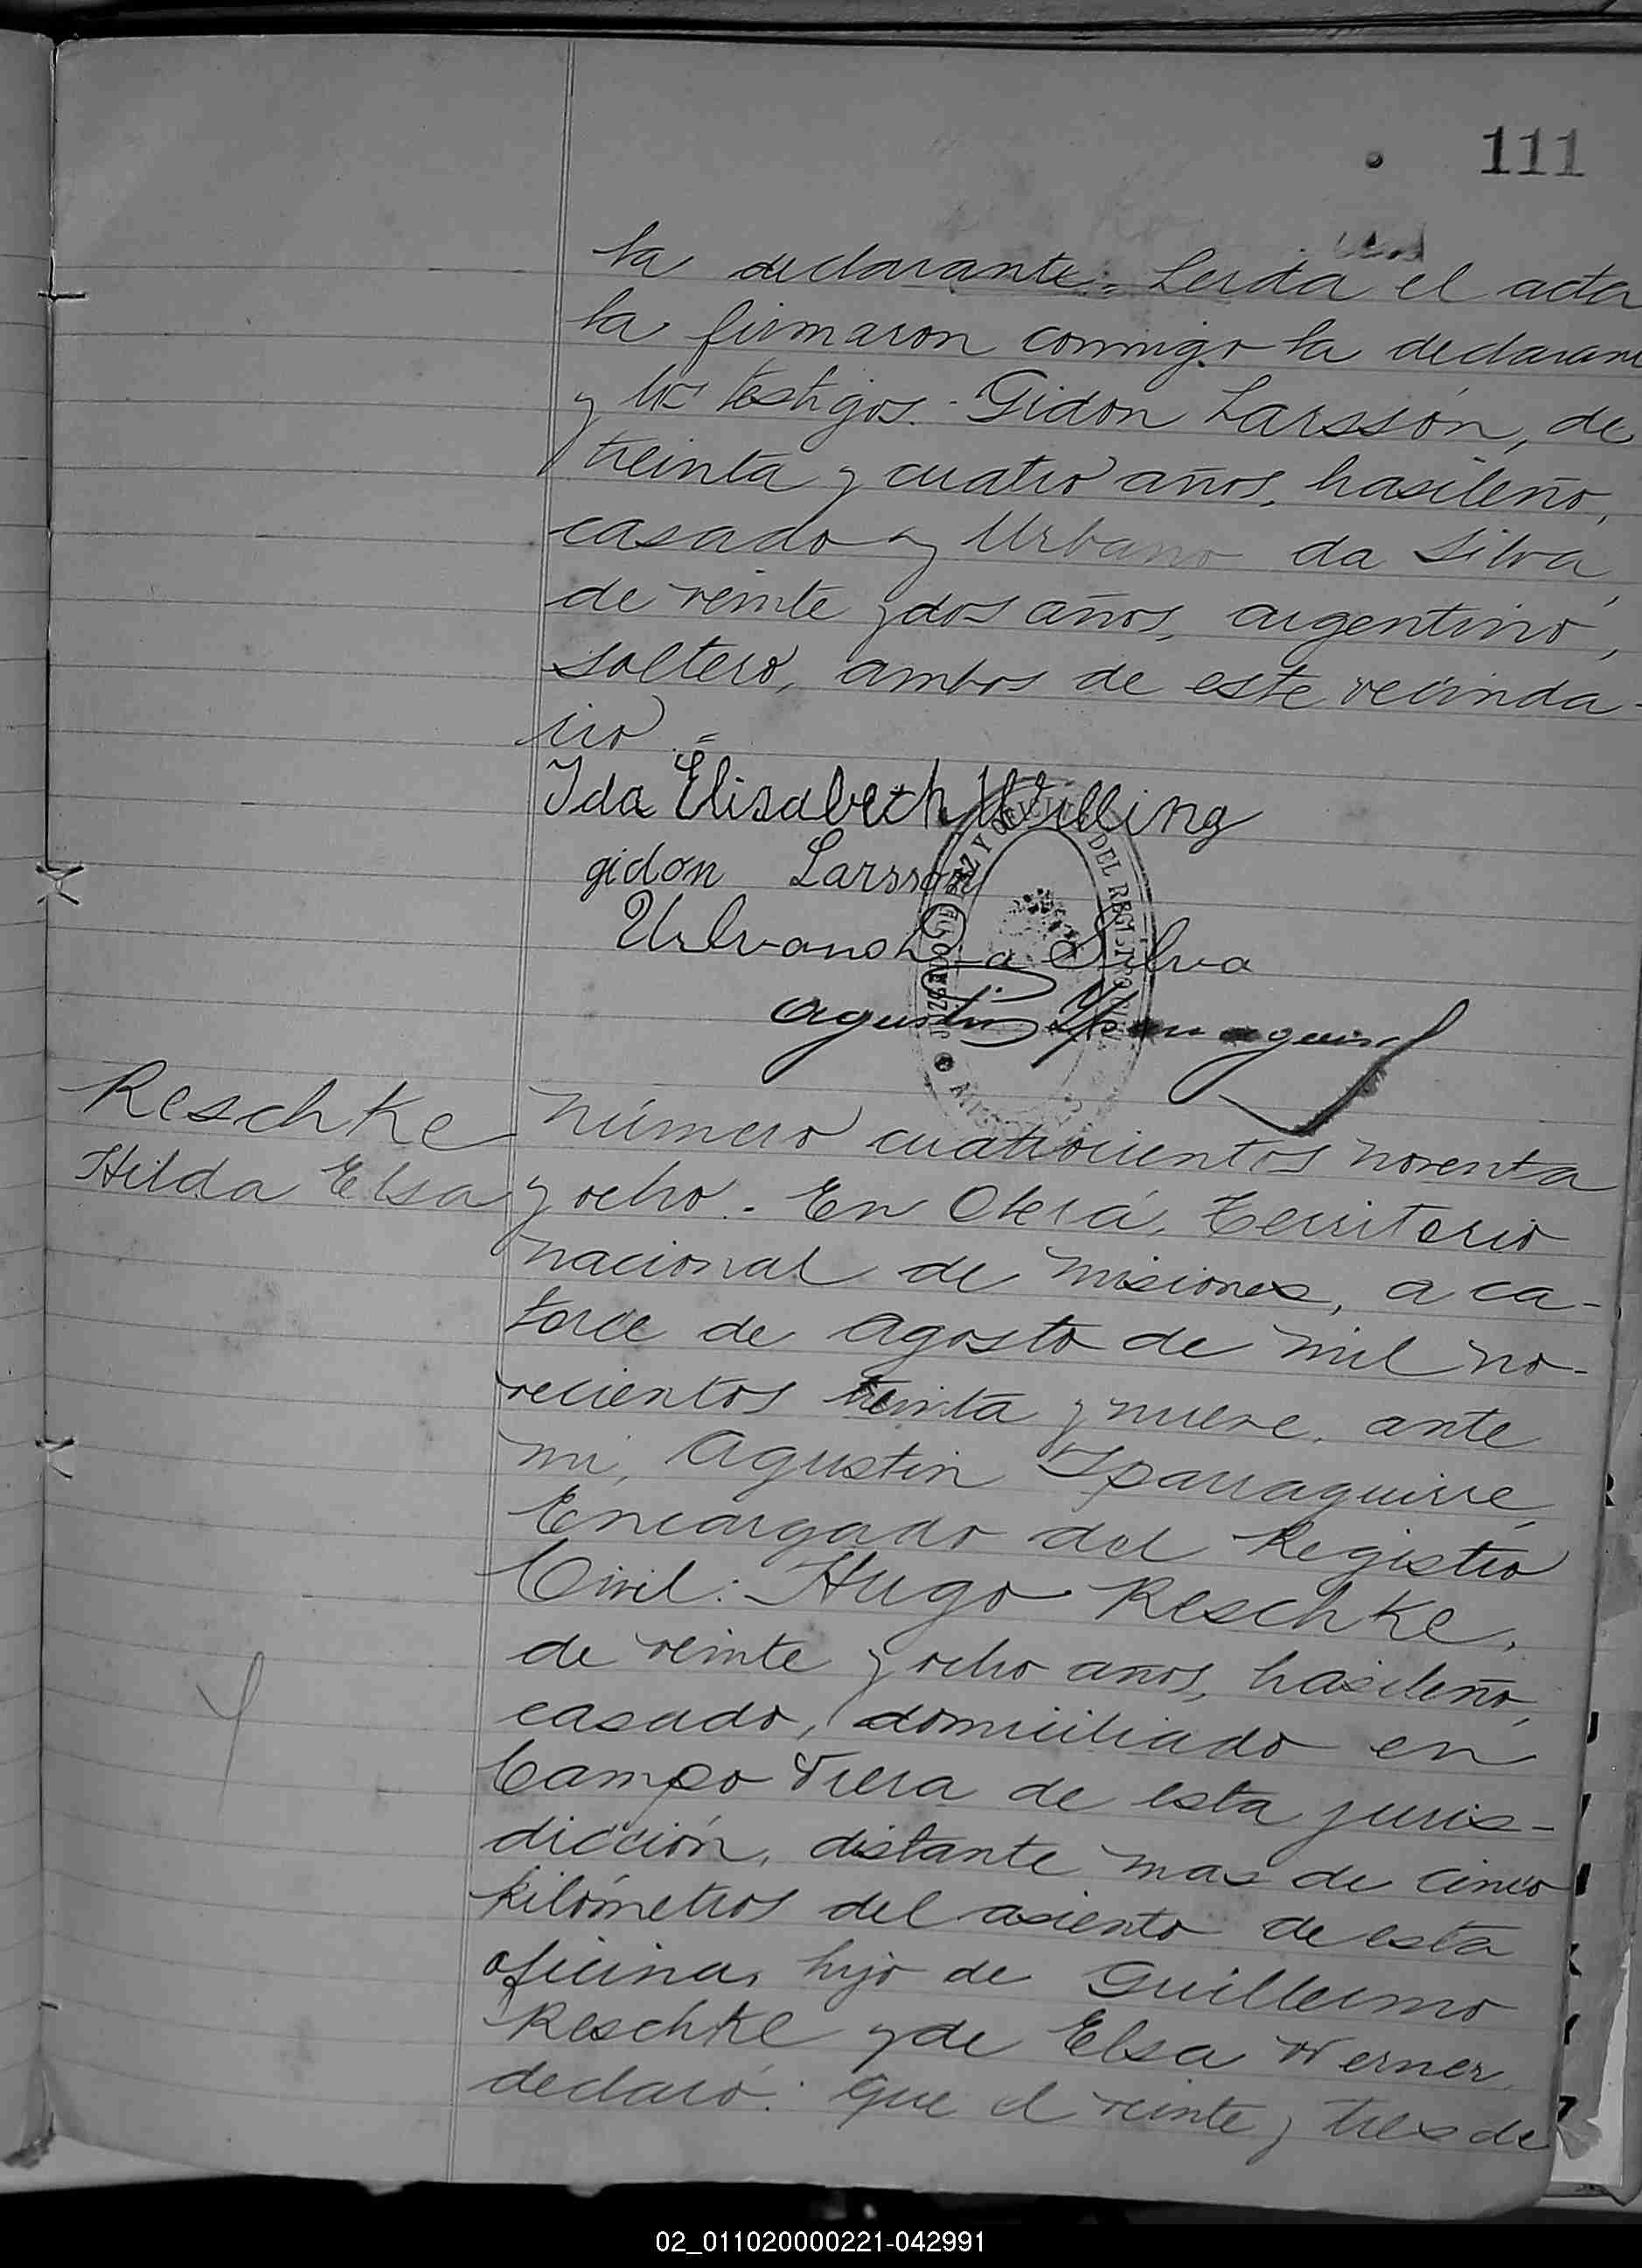 111
la declarante.= Leída el acta
la firmaron conmigo la declaran
y los testigos.- Gidon Larssón, de
treinta y cuatro años, brasileño,
casado y Urbano da Silva,
de veinte y dos años, argentino,
soltero, ambos de este vecinda-
rio.=
Ida Elisabeth Willing
gidon Larsson
Urbano Da Silva
Agustin Yparraguirre
JUZGADO DE PAZ Y OFICINA DEL REGISTRO CIVIL
MISIONES
Reschke
Hilda Elsa
Número cuatrocientos noventa
y ocho.- En Oberá, Territorio
nacional de Misiones, a ca-
torce de Agosto de mil no-
vecientos treinta y nueve, ante
mi, Agustin Yparraguirre,
Encargado del Registro
Civil: Hugo Reschke,
de veinte y ocho años, brasileño,
casado, domiciliado en
Campo Viera de esta juris-
dicción, distante mas de cinco
kilómetros del asiento de esta
oficina, hijo de Guillermo
Reschke y de Elsa Werner,
declaró: Que el veinte y tres de
02_011020000221-042991